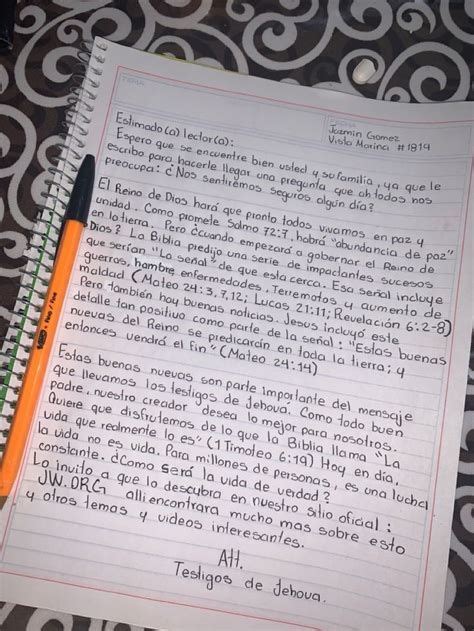 TEMA
FECHA
Jazmin Gomez
Vista Marina #1819
Estimado(a) lector(a):
Espero que se encuentre bien usted y su familia, ya que le
escribo para hacerle llegar una pregunta que ah todos nos
preocupa: ¿Nos sentiremos seguros algun dia?
El Reino de Dios hará que pronto todos vivamos en paz y
unidad. Como promete Salmo 72:7, habrá "abundancia de paz"
en la tierra. Pero ¿cuando empezará a gobernar el Reino de
Dios? La Biblia predijo una serie de impactantes sucesos
que serían "La señal" de que esta cerca. Esa señal incluye
guerras, hambre, enfermedades, Terremotos y aumento de
maldad (Mateo 24:3,7,12; Lucas 21:11; Revelación 6:2-8)
Pero también hay buenas noticias. Jesus incluyó este
detalle tan positivo como parte de la señal: "Estas buenas
nuevas del Reino se predicarán en toda la tierra; y
entonces vendrá el fin" (Mateo 24:14)
Estas buenas nuevas son parte importante del mensaje
que llevamos los testigos de Jehová. Como todo buen
padre, nuestro creador desea lo mejor para nosotros.
Quiere que disfrutemos de lo que la Biblia llama "La
vida que realmente lo es" (1 Timoteo 6:19) Hoy en día,
la vida no es vida. Para millones de personas, es una lucha
constante. ¿Como será la vida de verdad?
Lo invito a que lo descubra en nuestro sitio oficial:
JW.ORG alli encontrara mucho mas sobre esto
y otros temas y videos interesantes.
Att.
Testigos de Jehova.